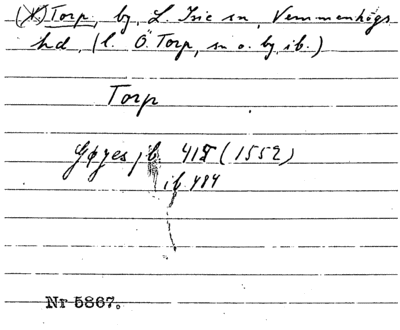 (X) Torp, by, L. Isie sn, Vemmenhögs
hd, (l. Ö. Torp, sn o. by ib.)
Torp
Gøyes jb. 415 (1552)
ib. 484
Nr 5867.